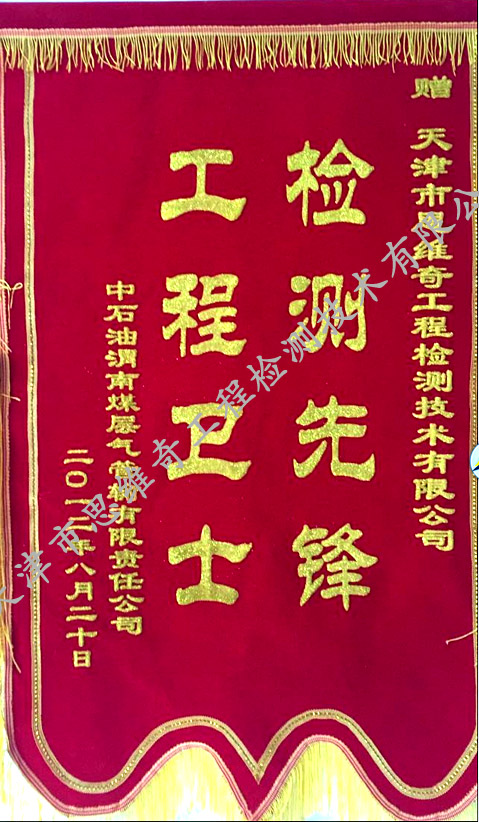 赠 天津市思维奇工程检测技术有限公司
检测先锋
工程卫士
中石油渭南煤层气管输有限责任公司
二〇一二年八月二十日
天津市思维奇工程检测技术有限公